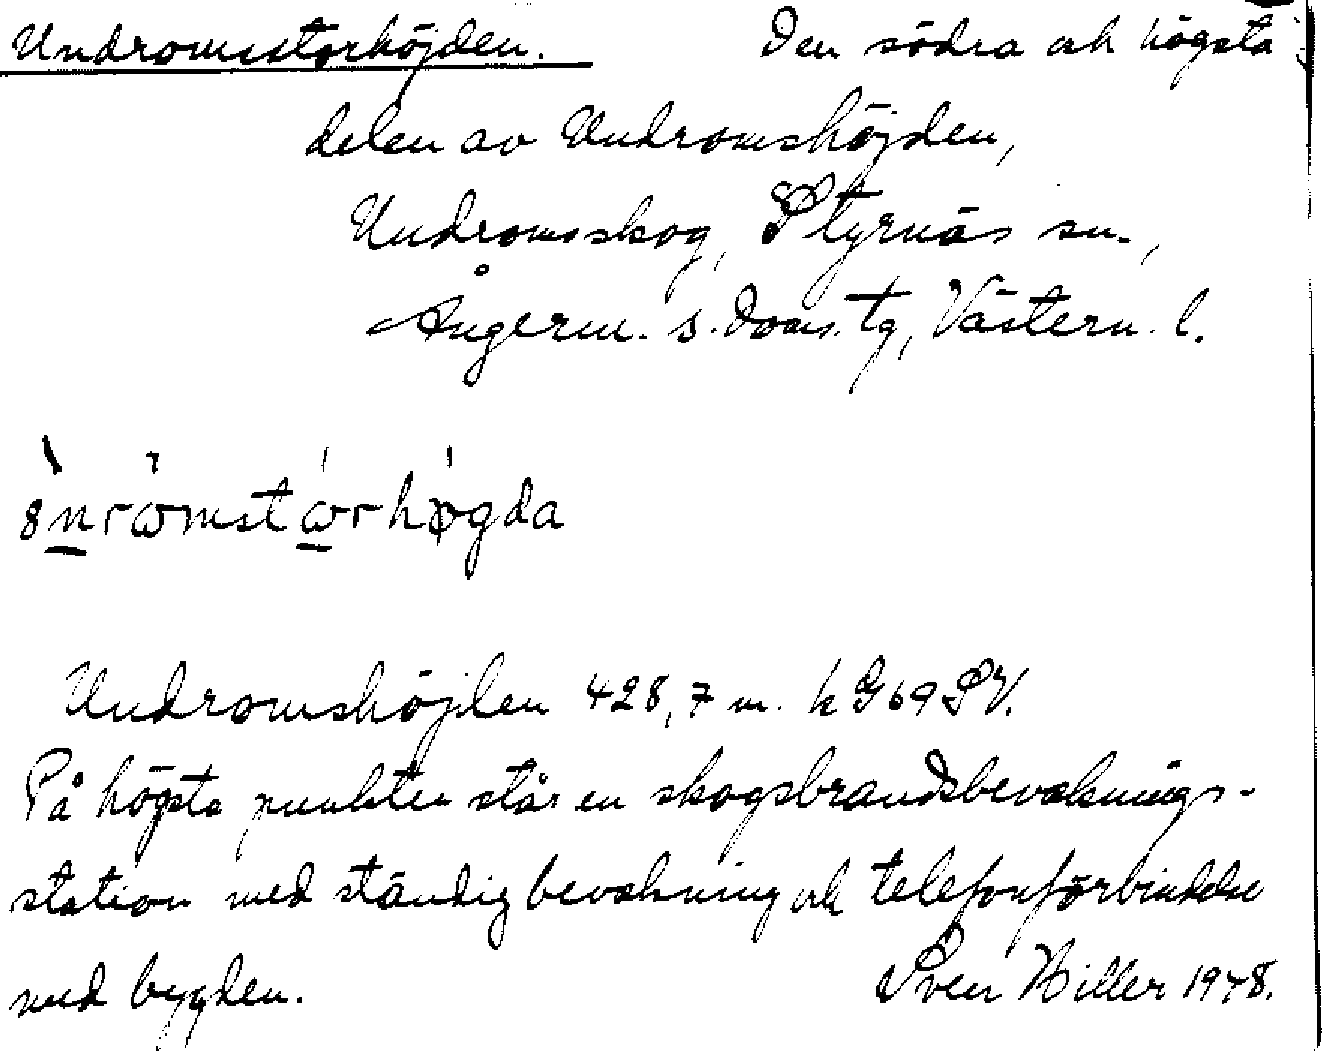 Undromsstorhöjden. Den södra och högsta
delen av Undromshöjden,
Undromsskog, Styrnäs sn.,
Ångerm. s. doms. tg, Västern. l.
Undromshöjden 428,7 m. k G 69 SV.
På högsta punkten står en skogsbrandsbevaknings-
station med ständig bevakning och telefonförbindelse
med bygden. Sven Hiller 1948.